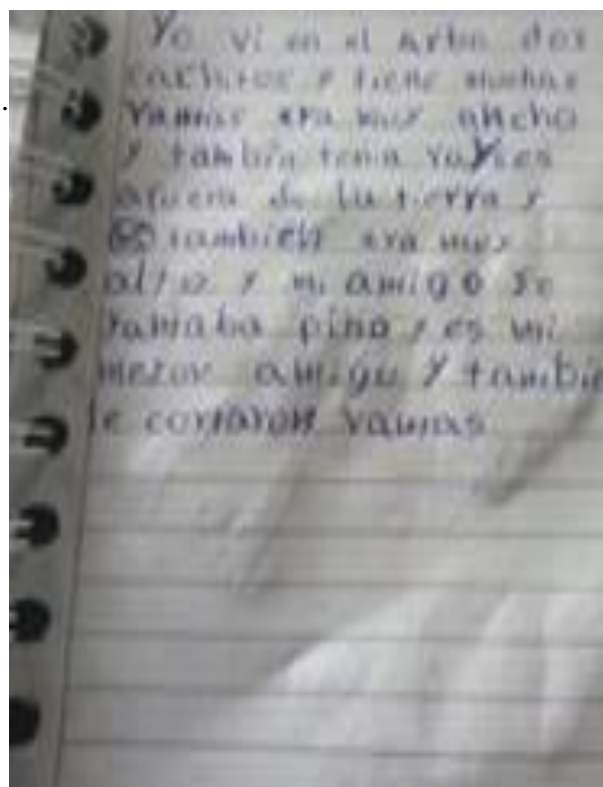 Yo vi en el arbo dos
cachitos y tiene muchas
ramas era muy ancho
y tambin tenia rayses
afuera de la tierra y
tambien era muy
alto y mi amigo se
yamaba pino y es mi
mejor amigo y tambie
le cortaron ramas